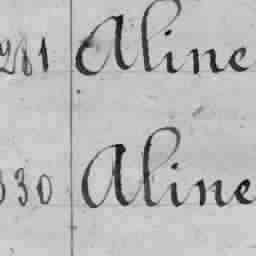 281 Aline
330 Aline